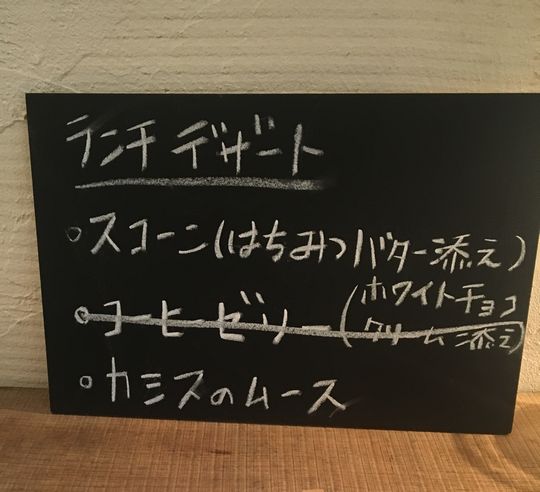 ランチ デザート
スコーン(はちみつバター添え)
コーヒーゼリー(ホワイトチョコ
クリーム添え)
カミスのムース